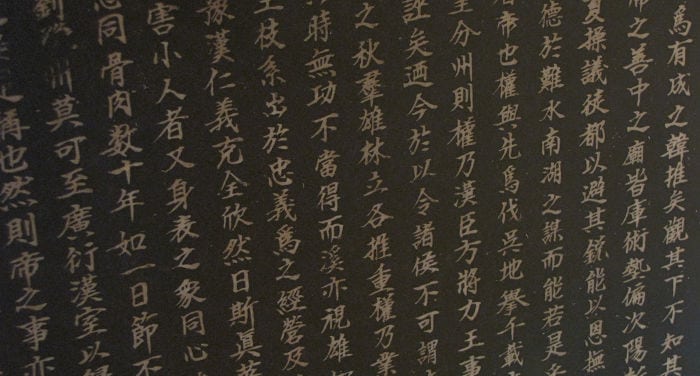 為有成之韓推矣觀其下不知其
帝之善中之廟皆庫術藝偏次陽
夏操議徒都以避其銳能以恩撫
德於難水南湖之謀而能若是
若帝也權與先為伐吳地擧不載
至分州則權乃漢臣方將力王事
誼矣迺今於以令諸侯不可謂
之秋羣雄林立各推重權乃業
時無功不當得而溪亦視雄
王枝系出於忠義為之經營及
豫漢仁義克全欣然曰斯真
害小人者又身表之衆同心
心同骨肉数十年如一日節不
劉 州莫可至廣衍漢室以
是稱也然則帝之事亦